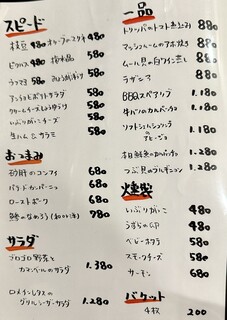 スピード
枝豆 480 オリーブのスタチ 480
ピクルス 480 梅水晶 580
うつぼ 580 580
アンチョビポテトサラダ 580
クリームチーズしょうゆづけ 580
いぶりがっこチーズ 580
生ハム & サラミ 580
おつまみ
砂肝のコンフィ 680
パテドカンパーニュ 680
ローストポーク 680
鯵のなめろう 780
サラダ
ゴロゴロ野菜と
カマンベールのサラダ 1.380
ロメインレタスの
グリルシーザーサラダ 1.280
一品
トリッパのトマト煮込み 880
マッシュルームのアヒージョ 880
ムール貝の白ワイン蒸し 880
ラザニア 880
BBQスペアリブ 1.180
牛バラのカルパッチョ 1.180
ソフトシェルシュリンプの
アヒージョ 1.180
本日鮮魚のカルパッチョ 1.280
つぶ貝のブルギニョン 1.280
燻製
いぶりがっこ 480
うずらの卵 480
ベビーホタテ 580
スモークチーズ 580
サーモン 680
バケット
4枚 200